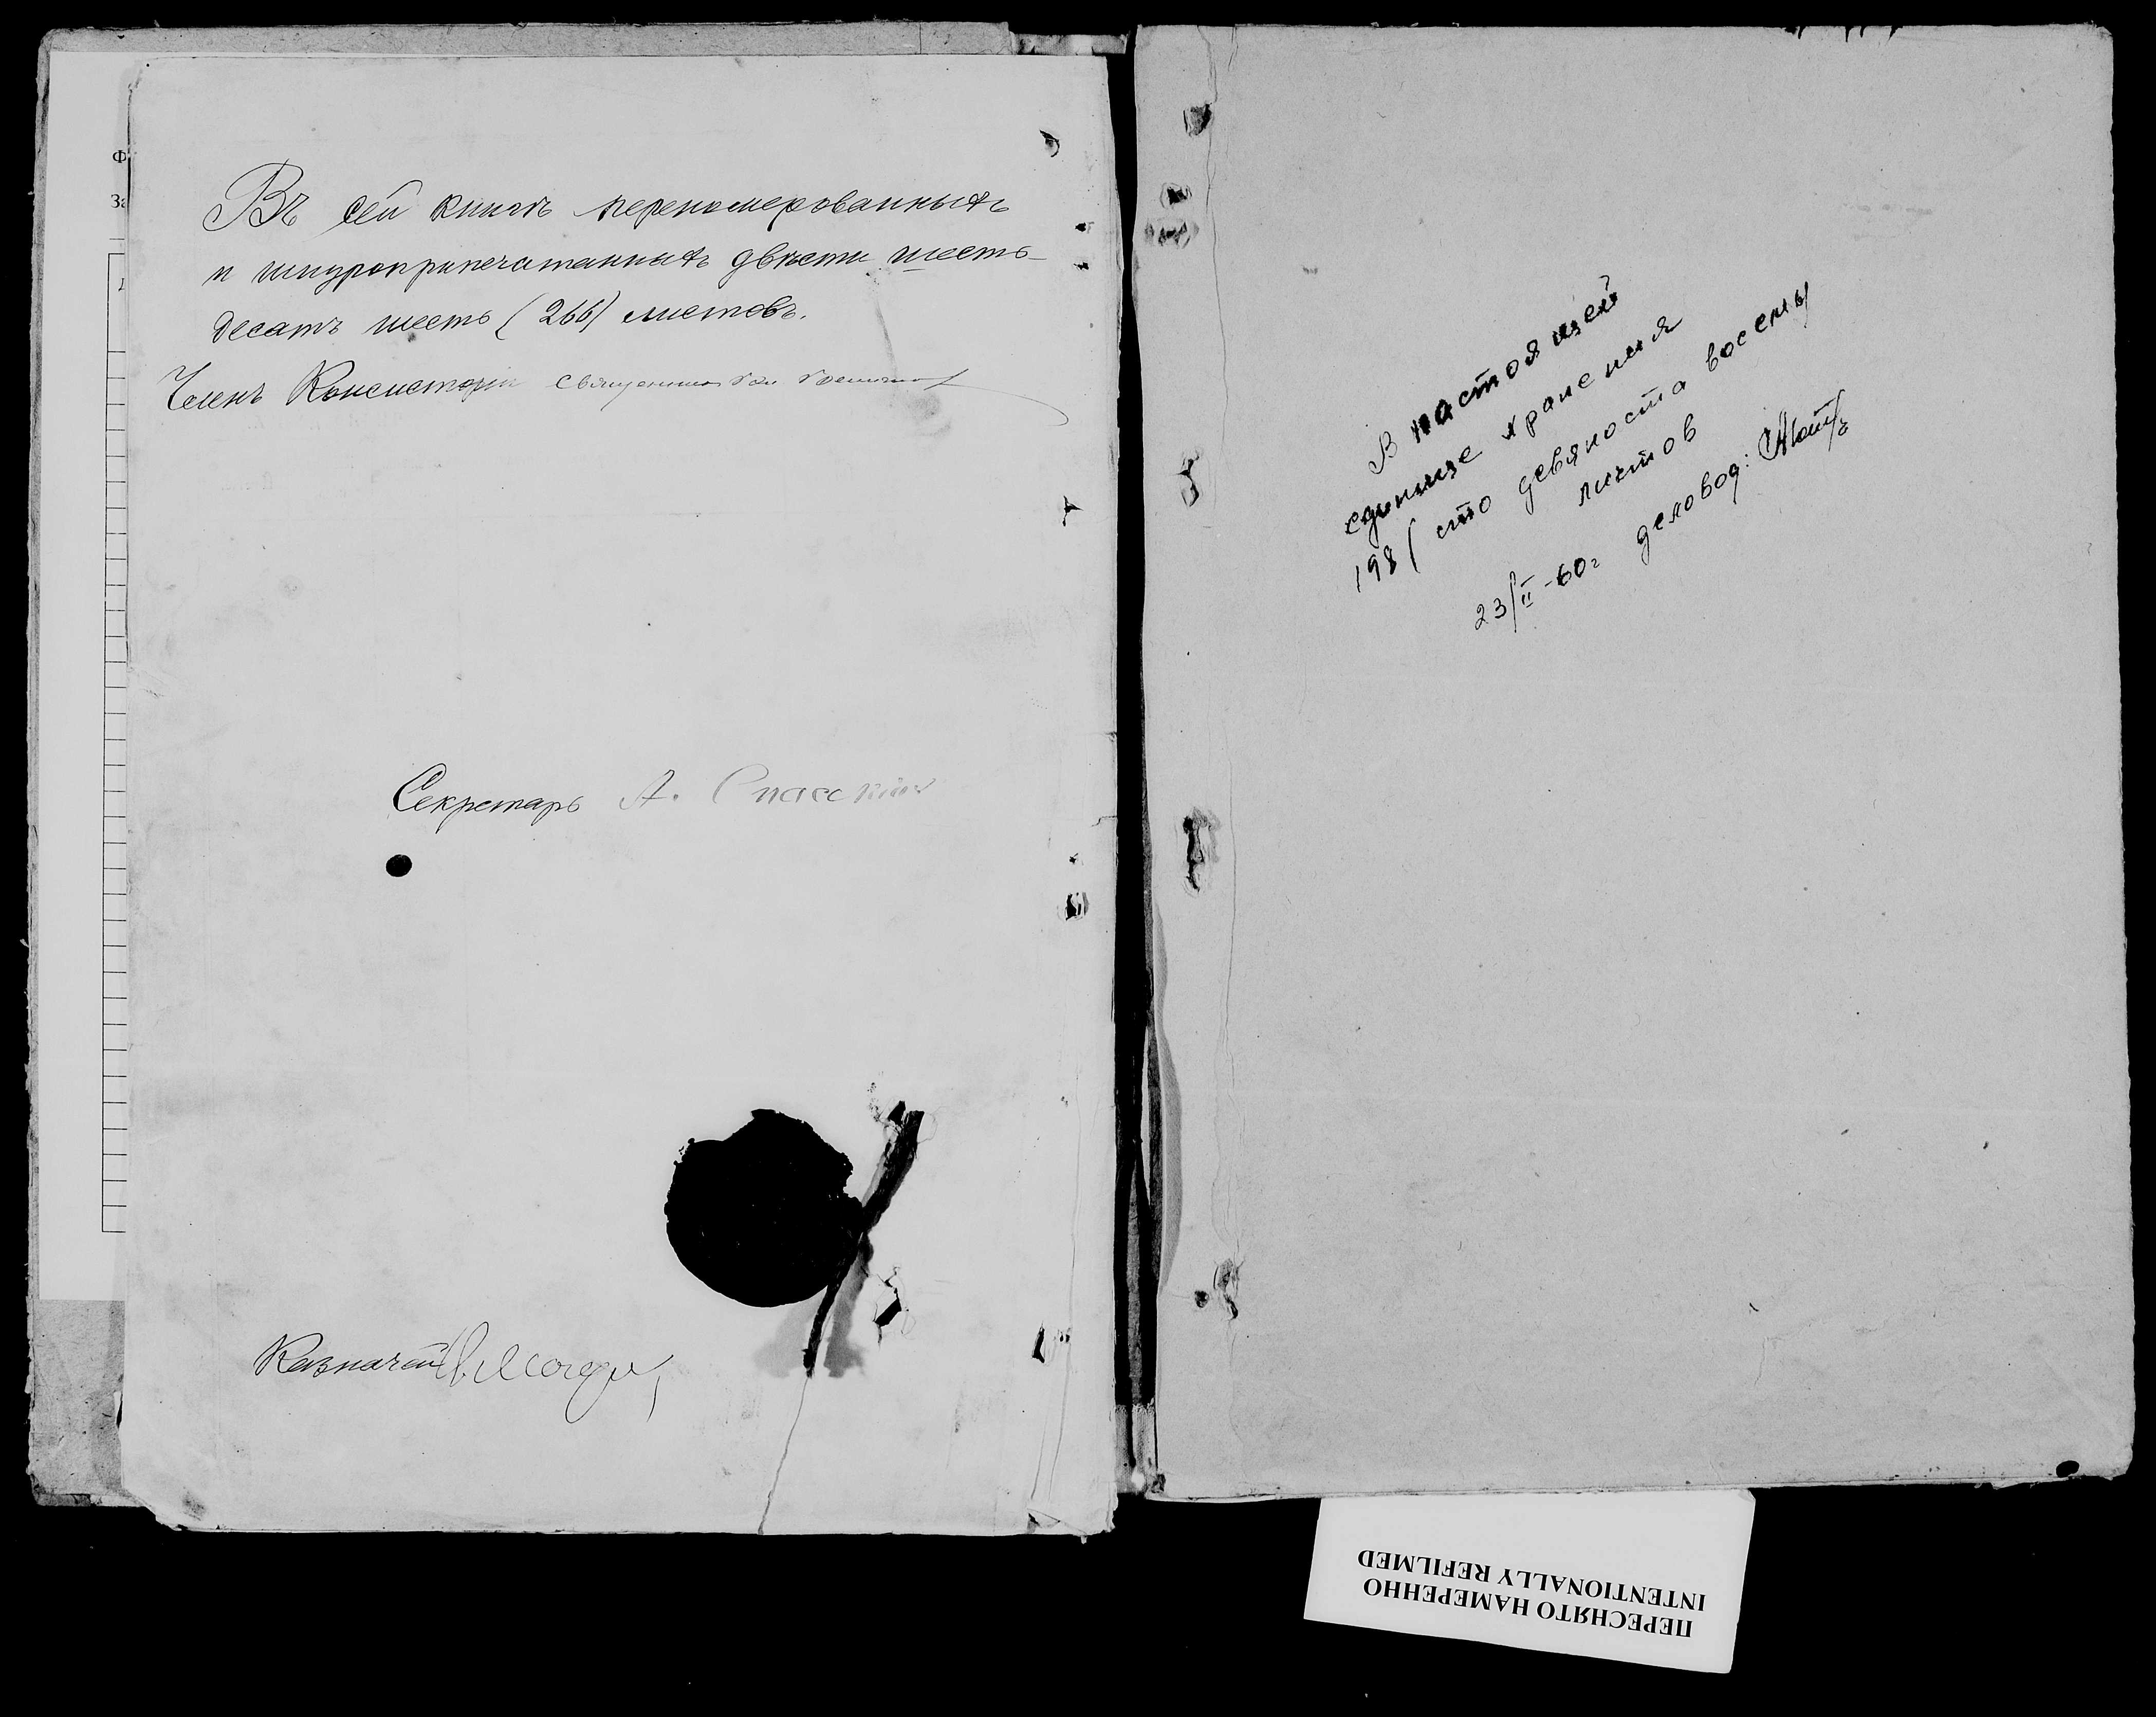 Въ сей книгѣ перенумерованныхъ
и шнуроприпечатанныхъ двѣсти шесть-
десятъ шесть (266) листовъ.
Членъ Консисторіи священникъ
Секретарь А. Спасскій
Казначей
Ф
За
В настоящей
единице хранения
198 ( сто девяноста восемь)
листов
23/II-60г деловод:
ПЕРЕСНЯТО НАМЕРЕННО
INTENTIONALLY REFILMED